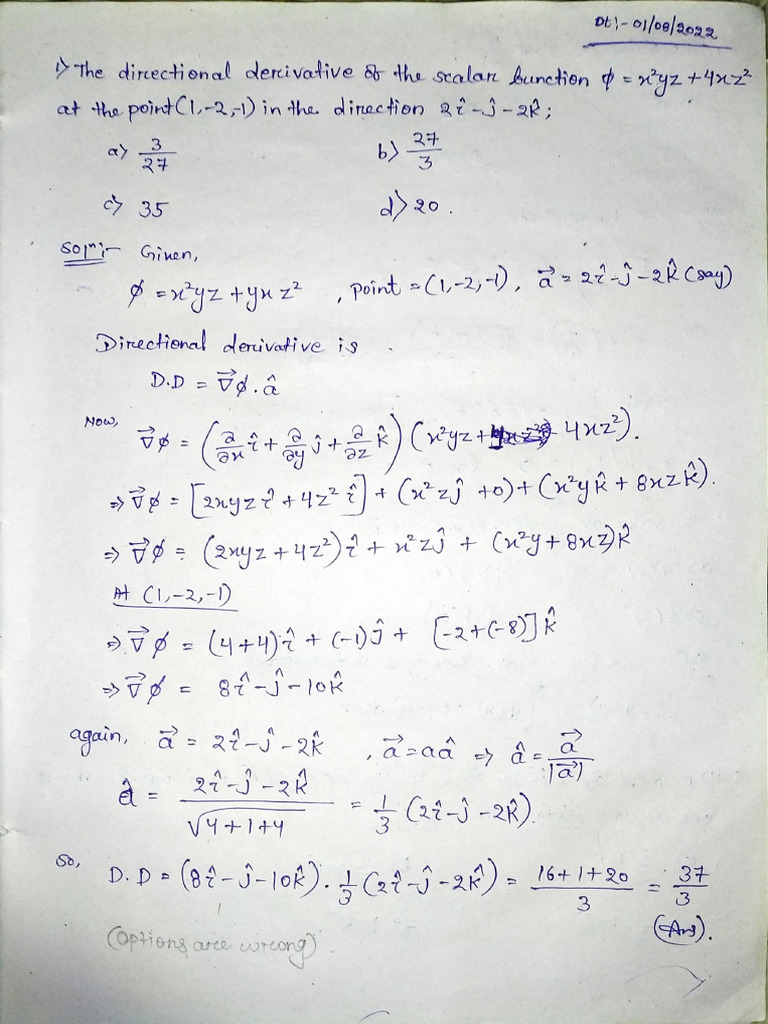 Dt:- 01/08/2022
1) The directional derivative of the scalar function φ = x²yz + 4xz²
at the point (1,-2,-1) in the direction 2î - ĵ - 2k̂;
a) 3/27 b) 27/3
c) 35 d) 20.
Soln:- Given,
φ = x²yz + yxz² , point = (1,-2,-1), a⃗ = 2î - ĵ - 2k̂ (say)
Directional derivative is .
D.D = ∇⃗φ.â
Now, ∇⃗φ = (∂/∂x î + ∂/∂y ĵ + ∂/∂z k̂) (x²yz + 4xz²).
⇒ ∇⃗φ = [2xyz î + 4z² î] + (x²zĵ + 0) + (x²yk̂ + 8xzk̂).
⇒ ∇⃗φ = (2xyz + 4z²)î + x²zĵ + (x²y + 8xz)k̂
At (1,-2,-1)
⇒ ∇⃗φ = (4+4)î + (-1)ĵ + [-2+(-8)]k̂
⇒ ∇⃗φ = 8î - ĵ - 10k̂
again, a⃗ = 2î - ĵ - 2k̂ , a⃗ = aâ ⇒ â = a⃗/|a⃗|
â = (2î - ĵ - 2k̂)/√4+1+4 = 1/3 (2î - ĵ - 2k̂).
So, D.D = (8î - ĵ - 10k̂).1/3 (2î - ĵ - 2k̂) = (16+1+20)/3 = 37/3
(Ans).
(Options are wrong)